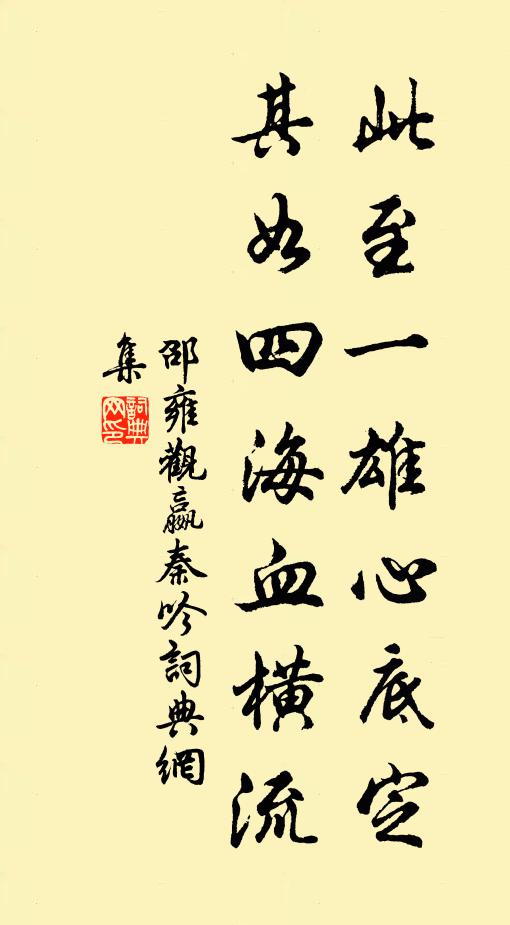 此至一雄心底定
其如四海血橫流
邵雍觀嬴秦吟詞典網
集
詞典网印